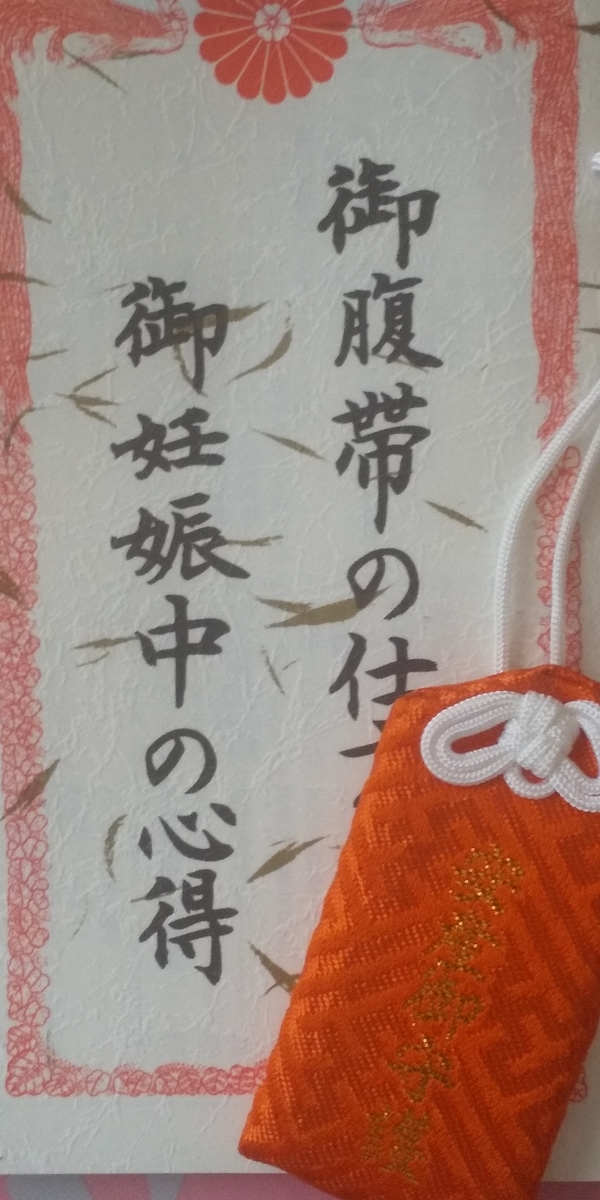 御腹帯の仕
御妊娠中の心得
安産御守護